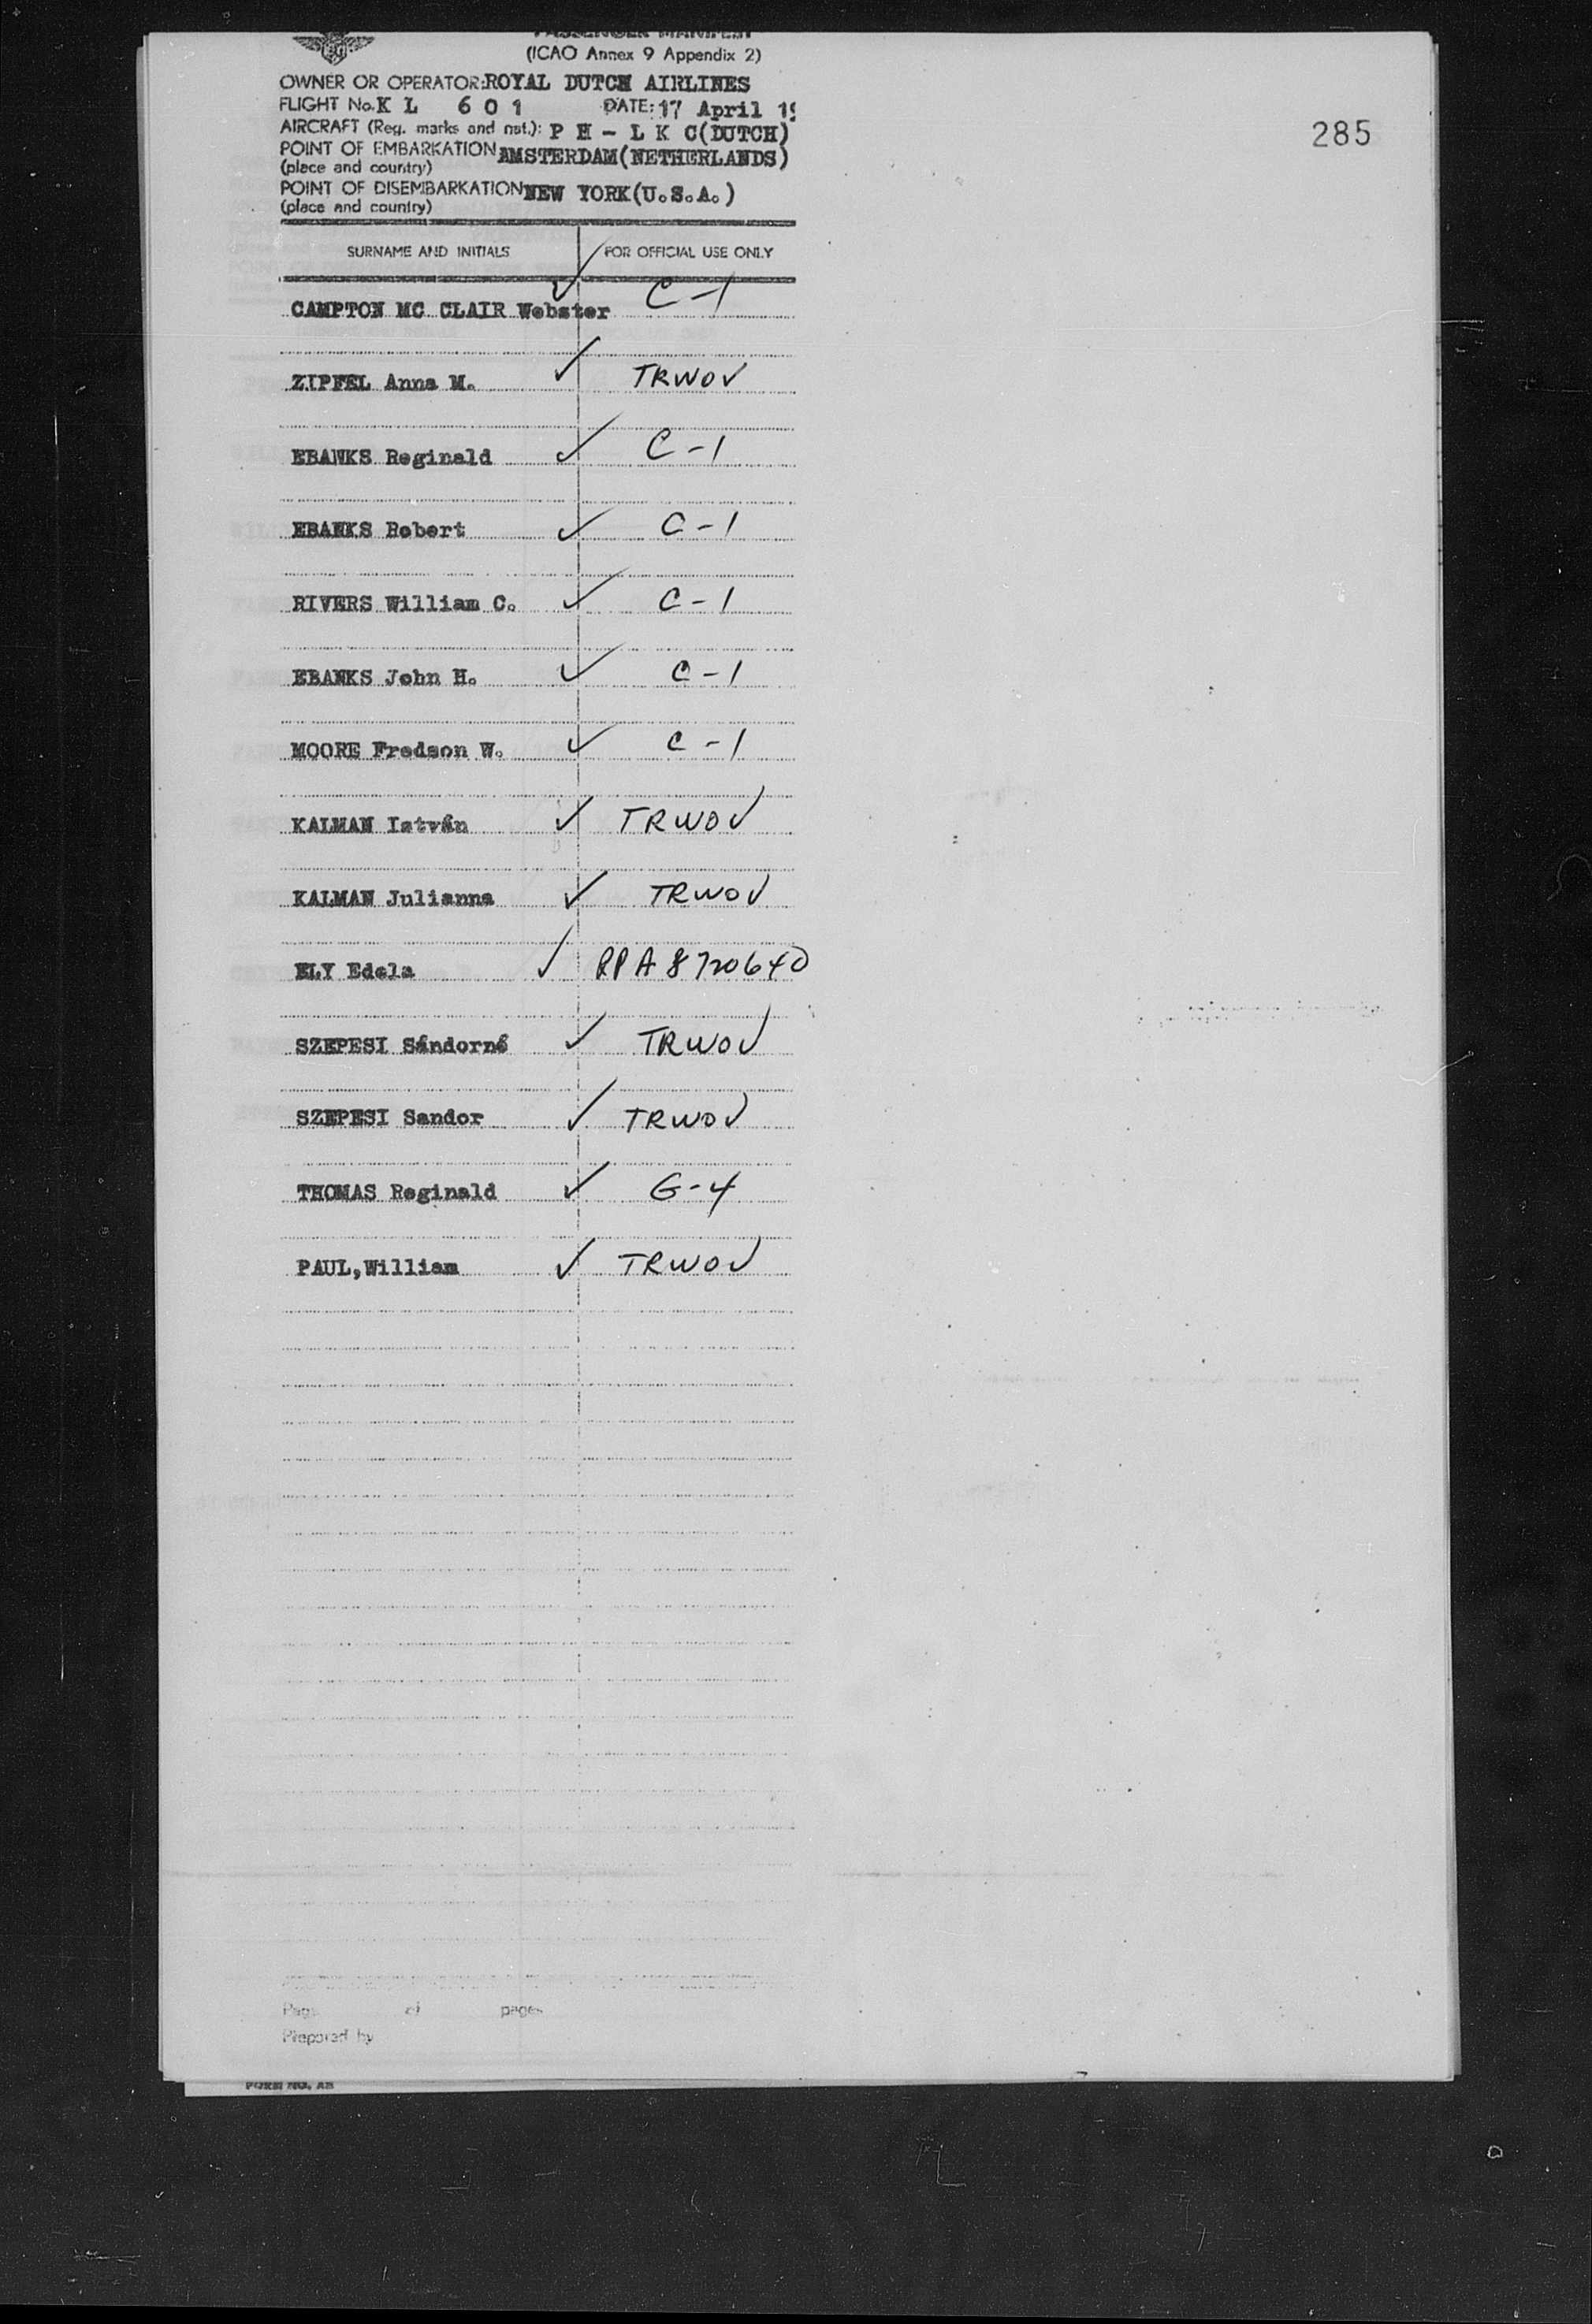 PASSENGER MANIFEST
(ICAO Annex 9 Appendix 2)
OWNER OR OPERATOR: ROYAL DUTCH AIRLINES
FLIGHT No. K L 6 0 1 DATE: 17 April 19
AIRCRAFT (Reg. marks and nat.): P H - L K C (DUTCH)
POINT OF EMBARKATION AMSTERDAM (NETHERLANDS)
(place and country)
POINT OF DISEMBARKATION NEW YORK (U.S.A.)
(place and country)
285
SURNAME AND INITIALS FOR OFFICIAL USE ONLY
CAMPTON MC CLAIR Webster ✓ C-1
ZIPFEL Anna M. ✓ TRWOV
EBANKS Reginald ✓ C-1
EBANKS Robert ✓ C-1
RIVERS William C. ✓ C-1
EBANKS John H. ✓ C-1
MOORE Fredson W. ✓ C-1
KALMAN István ✓ TRWOV
KALMAN Julianna ✓ TRWOV
ELY Edela ✓ RPA 8720640
SZEPESI Sándorné ✓ TRWOV
SZEPESI Sandor ✓ TRWOV
THOMAS Reginald ✓ G-4
PAUL, William ✓ TRWOV
Page of pages
Prepared by
FORM NO.